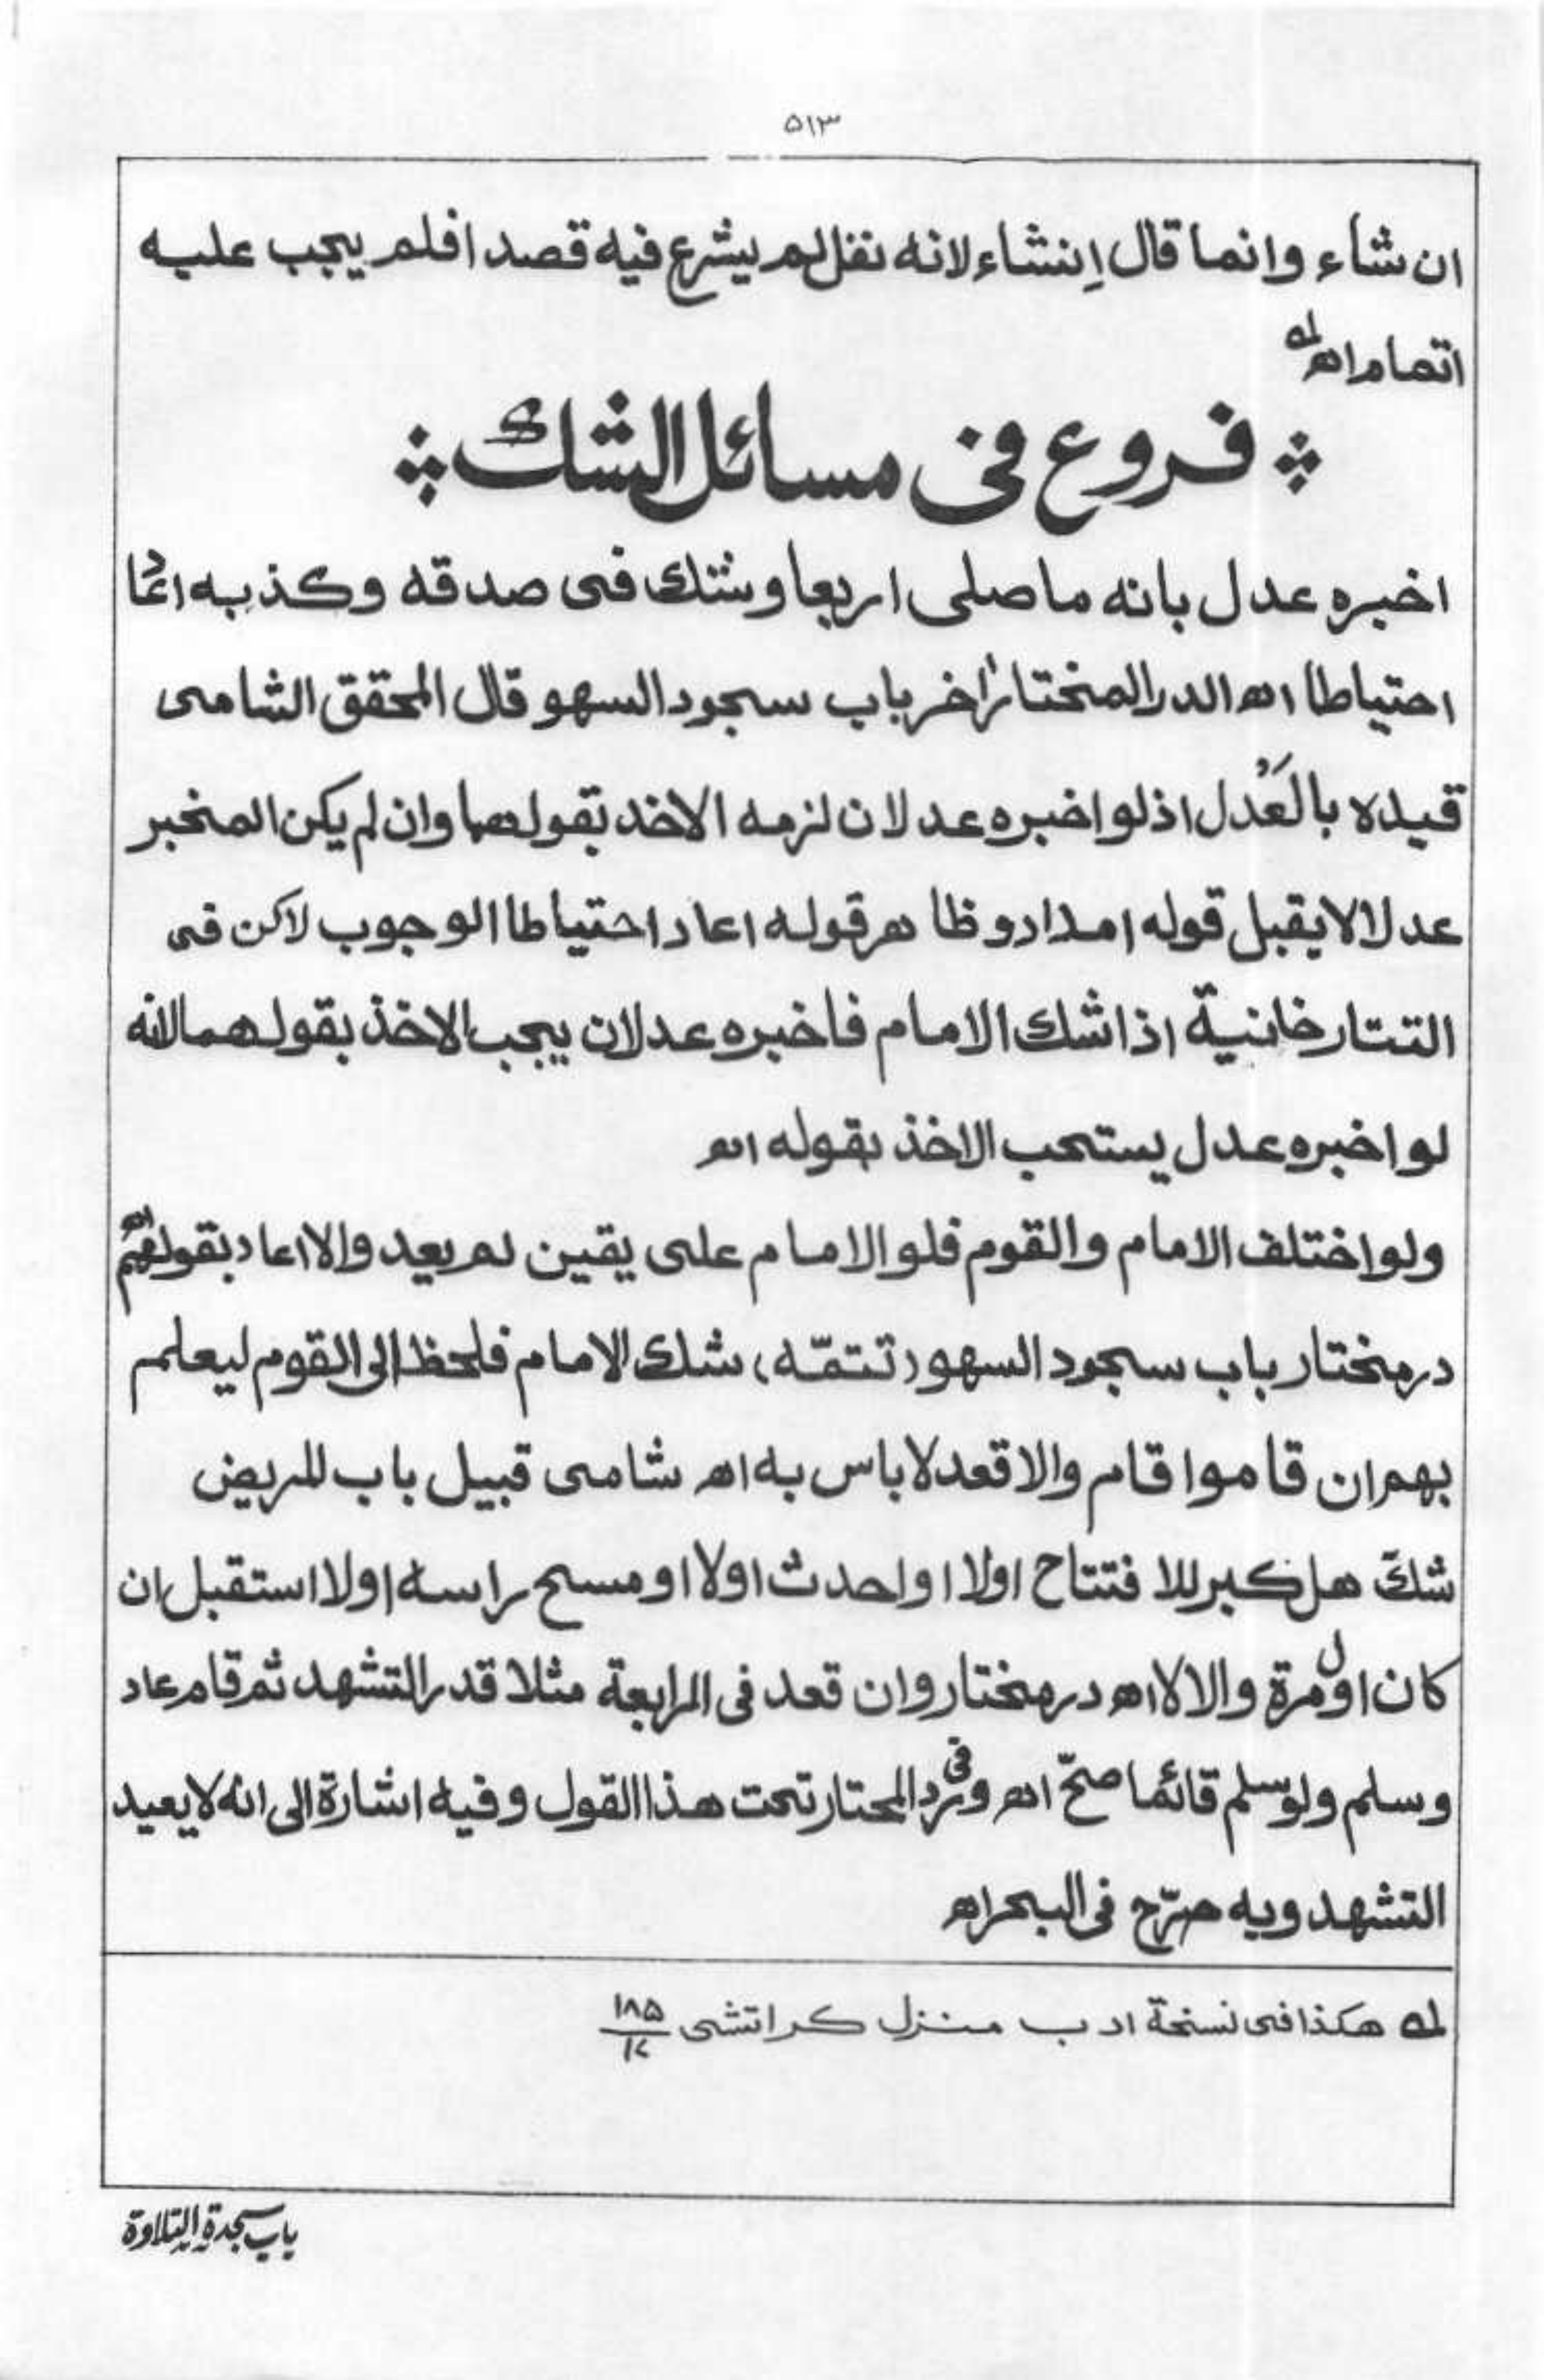 ٥١٣
ان شاء وانما قال إنشاء لانه نفل لم يشرع فيه قصدا فلم يجب عليه
اتمامه اھ له
فروع فی مسائل الشك
اخبره عدل بانه ما صلی اربعا وشك فی صدقه وكذبه اعاد
احتياطا اھ الدر المختار اٰخر باب سجود السهو قال المحقق الشامی
قيده بالعَدْل اذ لو اخبره عدلان لزمه الاخذ بقولهما وان لم يكن المخبر
عدلا لا يقبل قوله امداد وظاهر قوله اعاد احتياطا الوجوب لاكن فی
التتارخانية اذا شك الامام فاخبره عدلان يجب الاخذ بقولهما لانه
لو اخبره عدل يستحب الاخذ بقوله اھ
ولو اختلف الامام والقوم فلو الامام علی يقين لم يعد والا اعاد بقولهم اھ
در مختار باب سجود السهو (تتمّه) شك الامام فلحظ الی القوم ليعلم
بهم ان قاموا قام والا قعد لا باس به اھ شامی قبيل باب المريض
شكّ هل كبر للافتتاح اولا او احدث اولا او مسح راسه اولا استقبل ان
كان اول مرة والا لا اھ در مختار وان قعد فی الرابعة مثلا قدر التشهد ثم قام عاد
وسلم ولو سلم قائما صحّ اھ وفی رد المحتار تحت هذا القول وفيه اشارة الی انه لا يعيد
التشهد وبه صرّح فی البحر اھ
له هكذا فی نسخة ادب منزل كراتشی ١٨٥/١٢
باب سجدة التلاوة